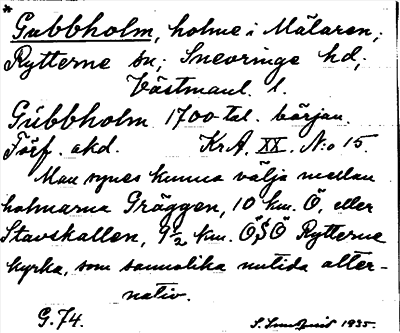 * Gubbholm, holme i Mälaren,
Rytterne sn, Snevringe hd,
Västmanl. l.
Gubbholm 1700-tal. början.
Förf. okd. Kr.A. XX. N:o 15.
Man synes kunna välja mellan
holmarna Gräggen, 10 km. Ö, eller
Stavskallen, 9½ km. ÖSÖ Rytterne
kyrka, som sannolika nutida alter-
nativ.
G. 74. S. 1935.